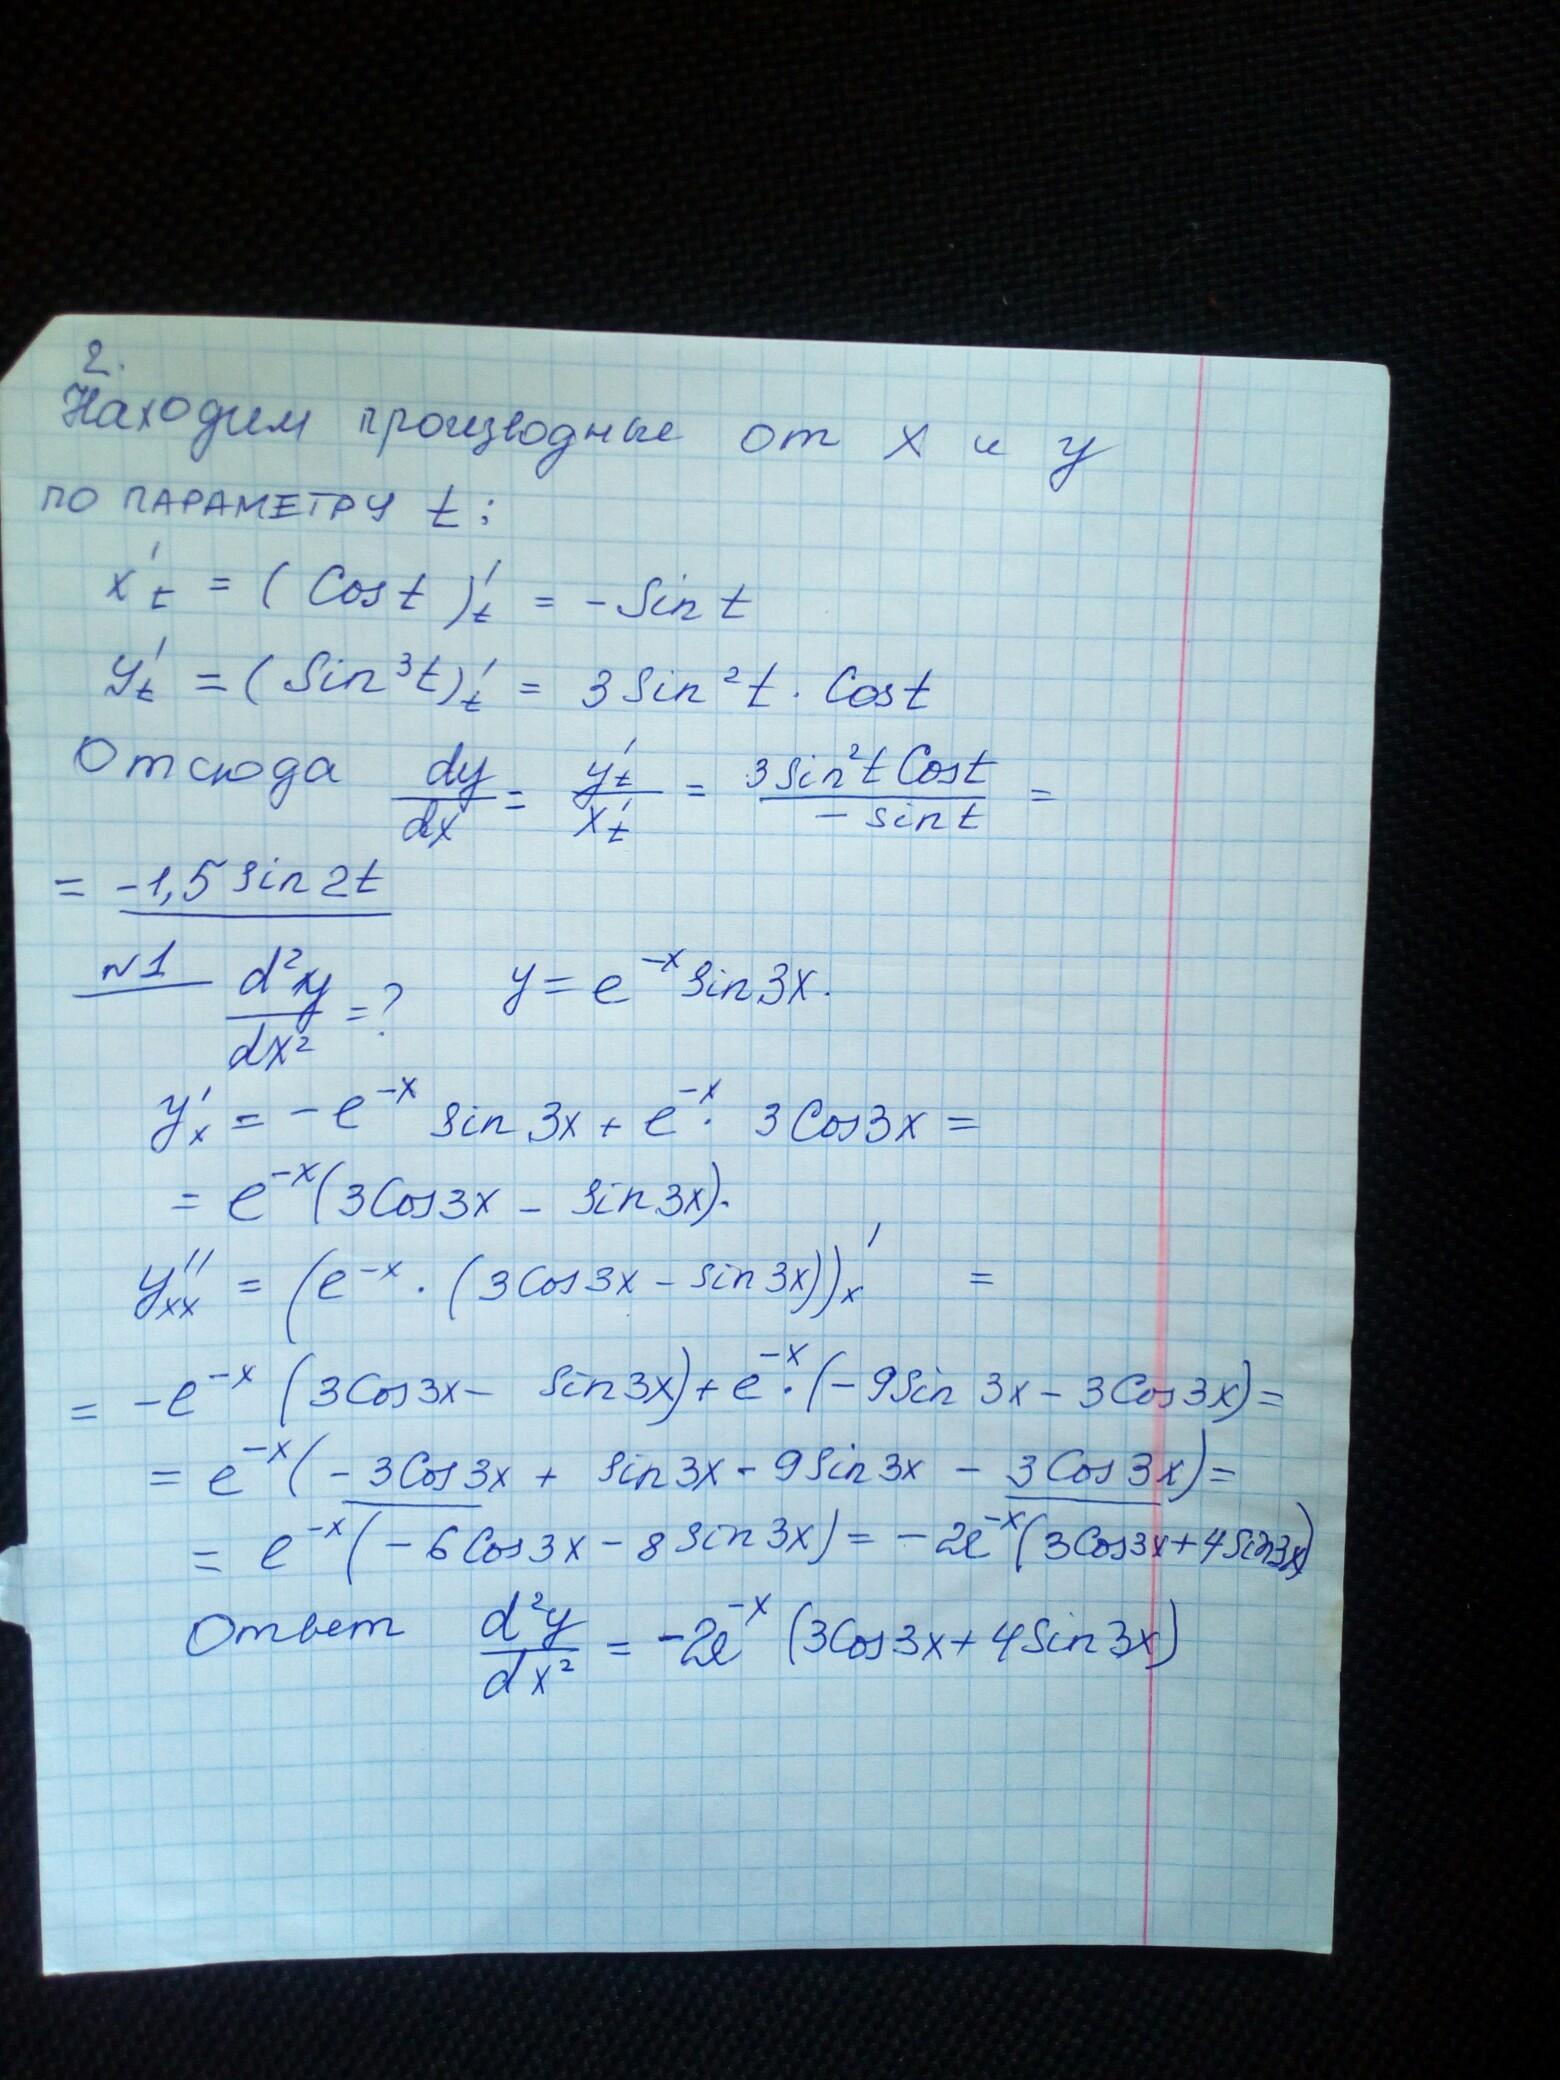 2.
Находим производные от x и y
по параметру t:
x't = (Cos t)'t = - Sin t
y't = (Sin³t)'t = 3 Sin²t · Cos t
Отсюда dy/dx = y't/x't = 3 sin²t Cos t / - sin t =
= -1,5 sin 2t
N1 d²y/dx² = ? y = e^-x sin 3x.
y'x = - e^-x sin 3x + e^-x · 3 Cos 3x =
= e^-x (3 Cos 3x - sin 3x).
y''xx = (e^-x · (3 Cos 3x - sin 3x))'x =
= -e^-x (3 Cos 3x - sin 3x) + e^-x · (-9 Sin 3x - 3 Cos 3x) =
= e^-x (-3 Cos 3x + sin 3x - 9 Sin 3x - 3 Cos 3x) =
= e^-x (-6 Cos 3x - 8 sin 3x) = -2e^-x (3 Cos 3x + 4 sin 3x)
Ответ d²y/dx² = -2e^-x (3 Cos 3x + 4 Sin 3x)